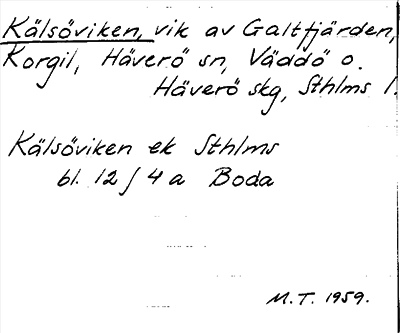 Kälsöviken, vik av Galtfjärden,
Korgil, Häverö sn, Väddö o.
Häverö skg, Sthlms l.
Kälsöviken ek Sthlms
bl. 12 J 4 a Boda
M.T. 1959.